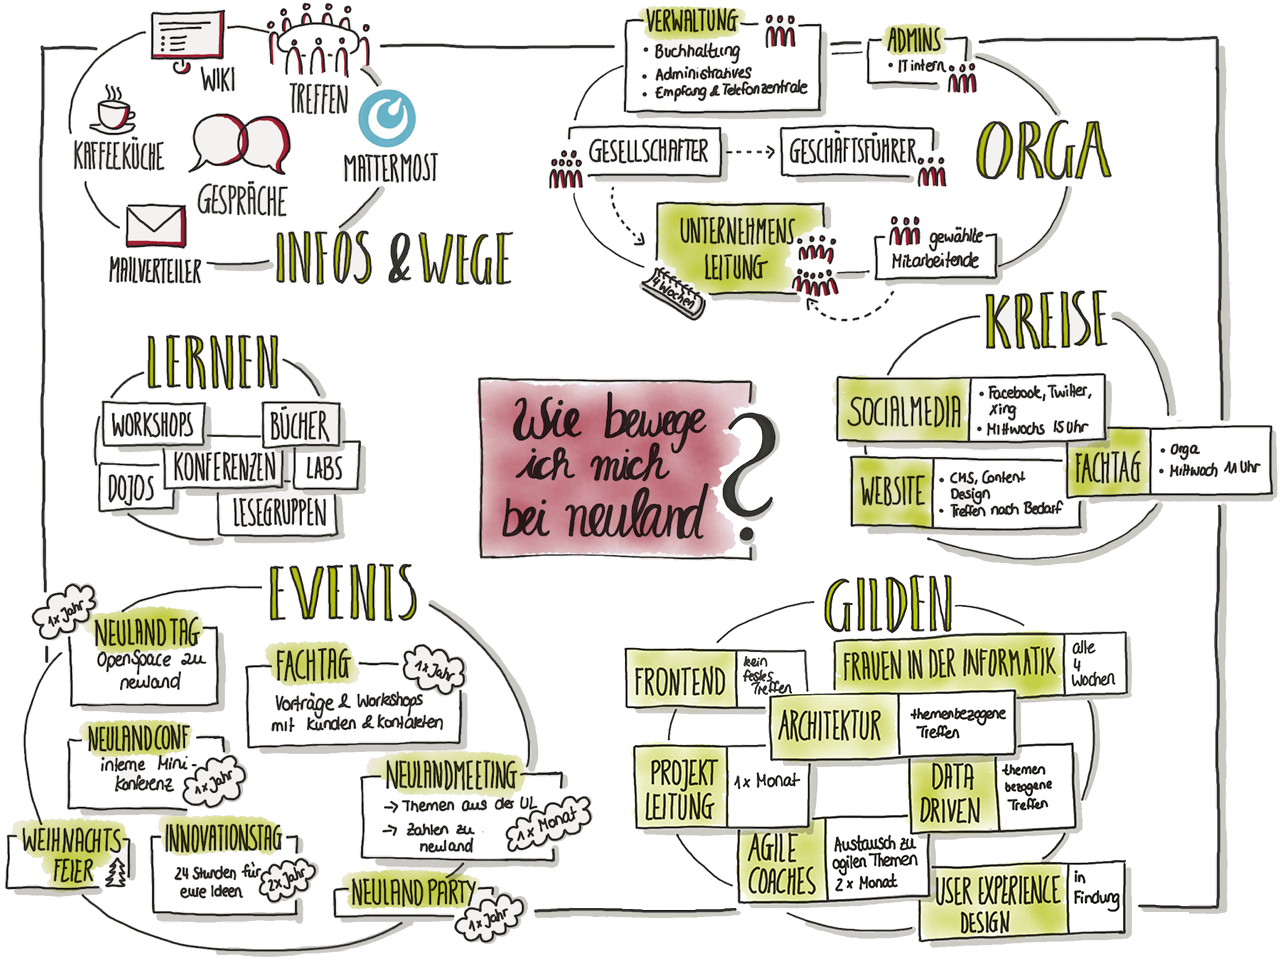 WIKI
TREFFEN
KAFFEEKÜCHE
GESPRÄCHE
MATTERMOST
MAILVERTEILER
INFOS & WEGE
VERWALTUNG
• Buchhaltung
• Administratives
• Empfang & Telefonzentrale
ADMINS
• IT intern
GESELLSCHAFTER
GESCHÄFTSFÜHRER
ORGA
UNTERNEHMENS
LEITUNG
4 Wochen
gewählte
Mitarbeitende
LERNEN
WORKSHOPS
BÜCHER
KONFERENZEN
LABS
DOJOS
LESEGRUPPEN
Wie bewege
ich mich
bei neuland
?
KREISE
SOCIALMEDIA
• Facebook, Twitter,
Xing
• Mittwochs 15 Uhr
FACHTAG
• Orga
• Mittwoch 11 Uhr
WEBSITE
• CMS, Content
Design
• Treffen nach Bedarf
EVENTS
1x Jahr
NEULAND TAG
OpenSpace zu
neuland
FACHTAG
1x Jahr
Vorträge & Workshops
mit Kunden & Kontakten
NEULANDCONF
interne Mini-
Konferenz
1x Jahr
NEULANDMEETING
→ Themen aus der UL
→ Zahlen zu
neuland
1x Monat
WEIHNACHTS
FEIER
INNOVATIONSTAG
24 Stunden für
eure Ideen
2x Jahr
NEULAND PARTY
1x Jahr
GILDEN
FRONTEND
kein
festes
Treffen
FRAUEN IN DER INFORMATIK
alle
4
Wochen
ARCHITEKTUR
themenbezogene
Treffen
PROJEKT
LEITUNG
1x Monat
DATA
DRIVEN
themen
bezogene
Treffen
AGILE
COACHES
Austausch zu
agilen Themen
2x Monat
USER EXPERIENCE
DESIGN
in
Findung